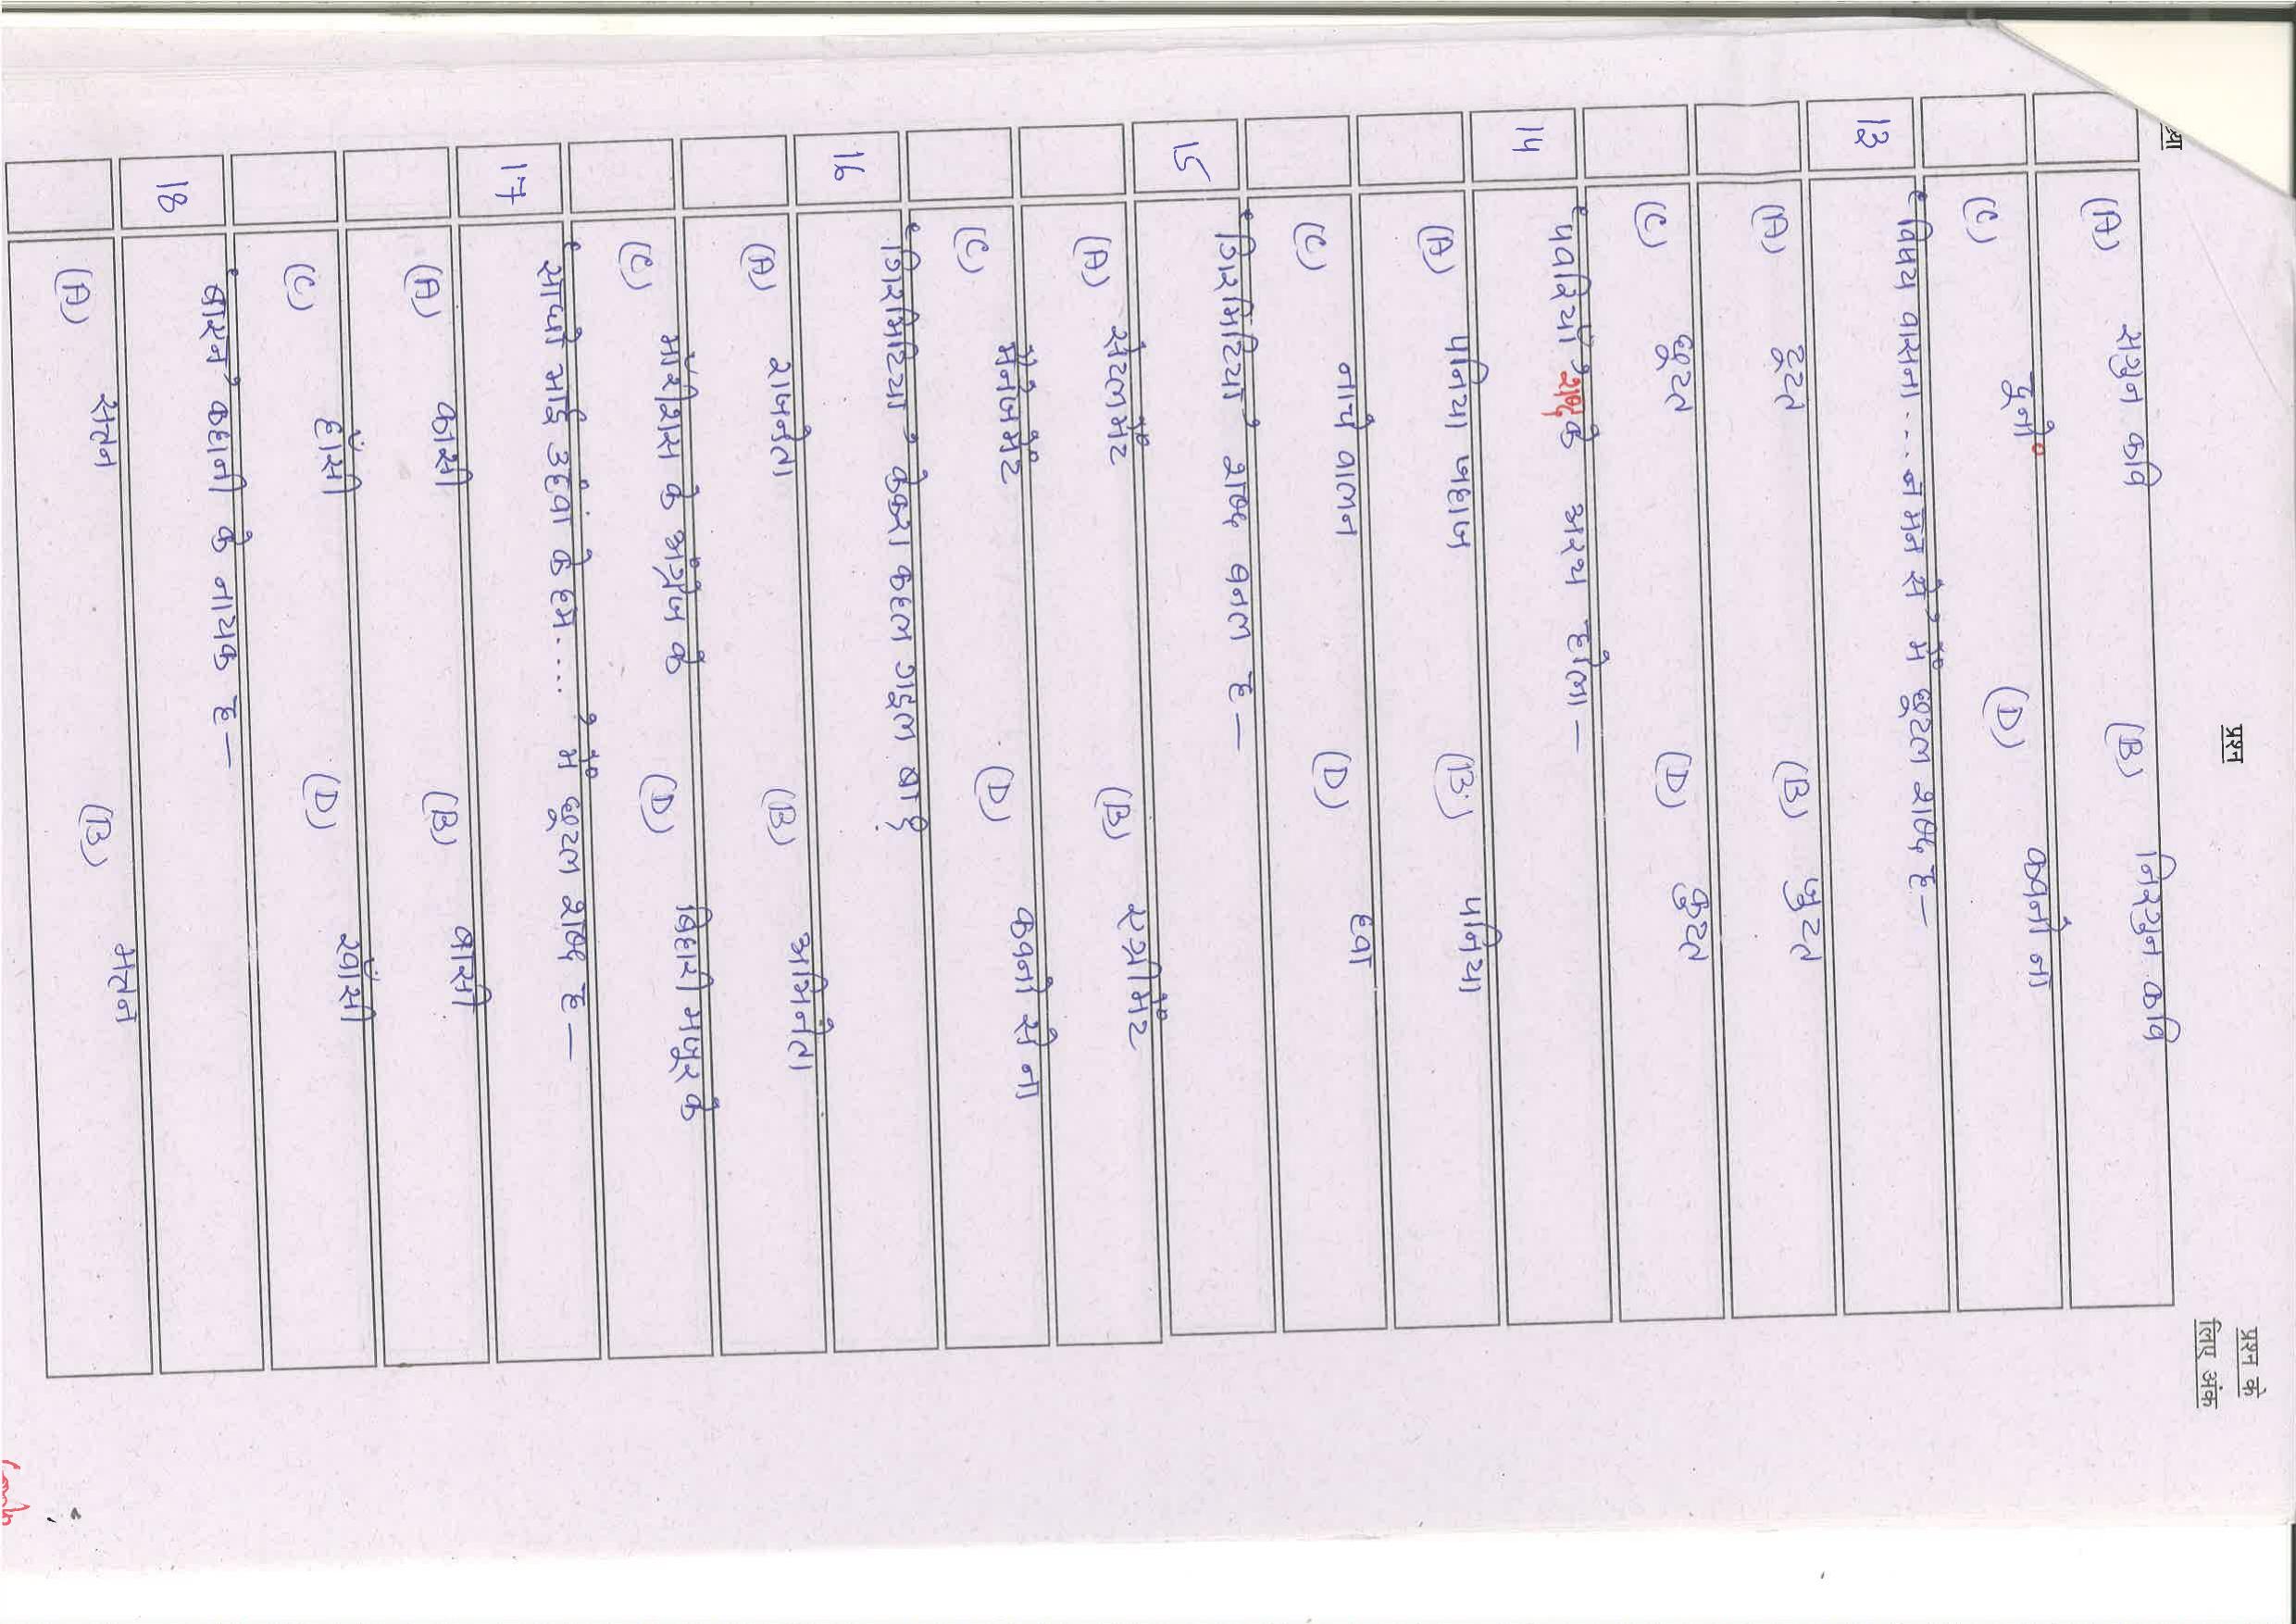 प्रश्न
प्रश्न के
लिए अंक
(A) सगुन कवि (B) निरगुन कवि
(C) दूनो (D) कवनो ना
13 "विषय वासना... न मन से" में छूटल शब्द ह—
(A) टूटल (B) जुटल
(C) छूटल (D) कुटल
14 "पवरिया" शब्द के अरथ होला—
(A) पनिया जहाज (B) पनिया
(C) नाचे वालन (D) हवा
15 "गिरमिटिया" शब्द बनल ह—
(A) सेटलमेंट (B) एग्रीमेंट
(C) मैनेजमेंट (D) कवनो से ना
16 "गिरमिटिया" केकरा कहल गइल बा?
(A) राजनेता (B) अभिनेता
(C) मॉरीशस के अंग्रेज के (D) बिहारी मजूर के
17 "साधो भाई उहंवा के हम...." में छूटल शब्द ह—
(A) काशी (B) बासी
(C) हाँसी (D) खाँसी
18 "बारन" कहानी के नायक ह—
(A) सतन (B) मतन